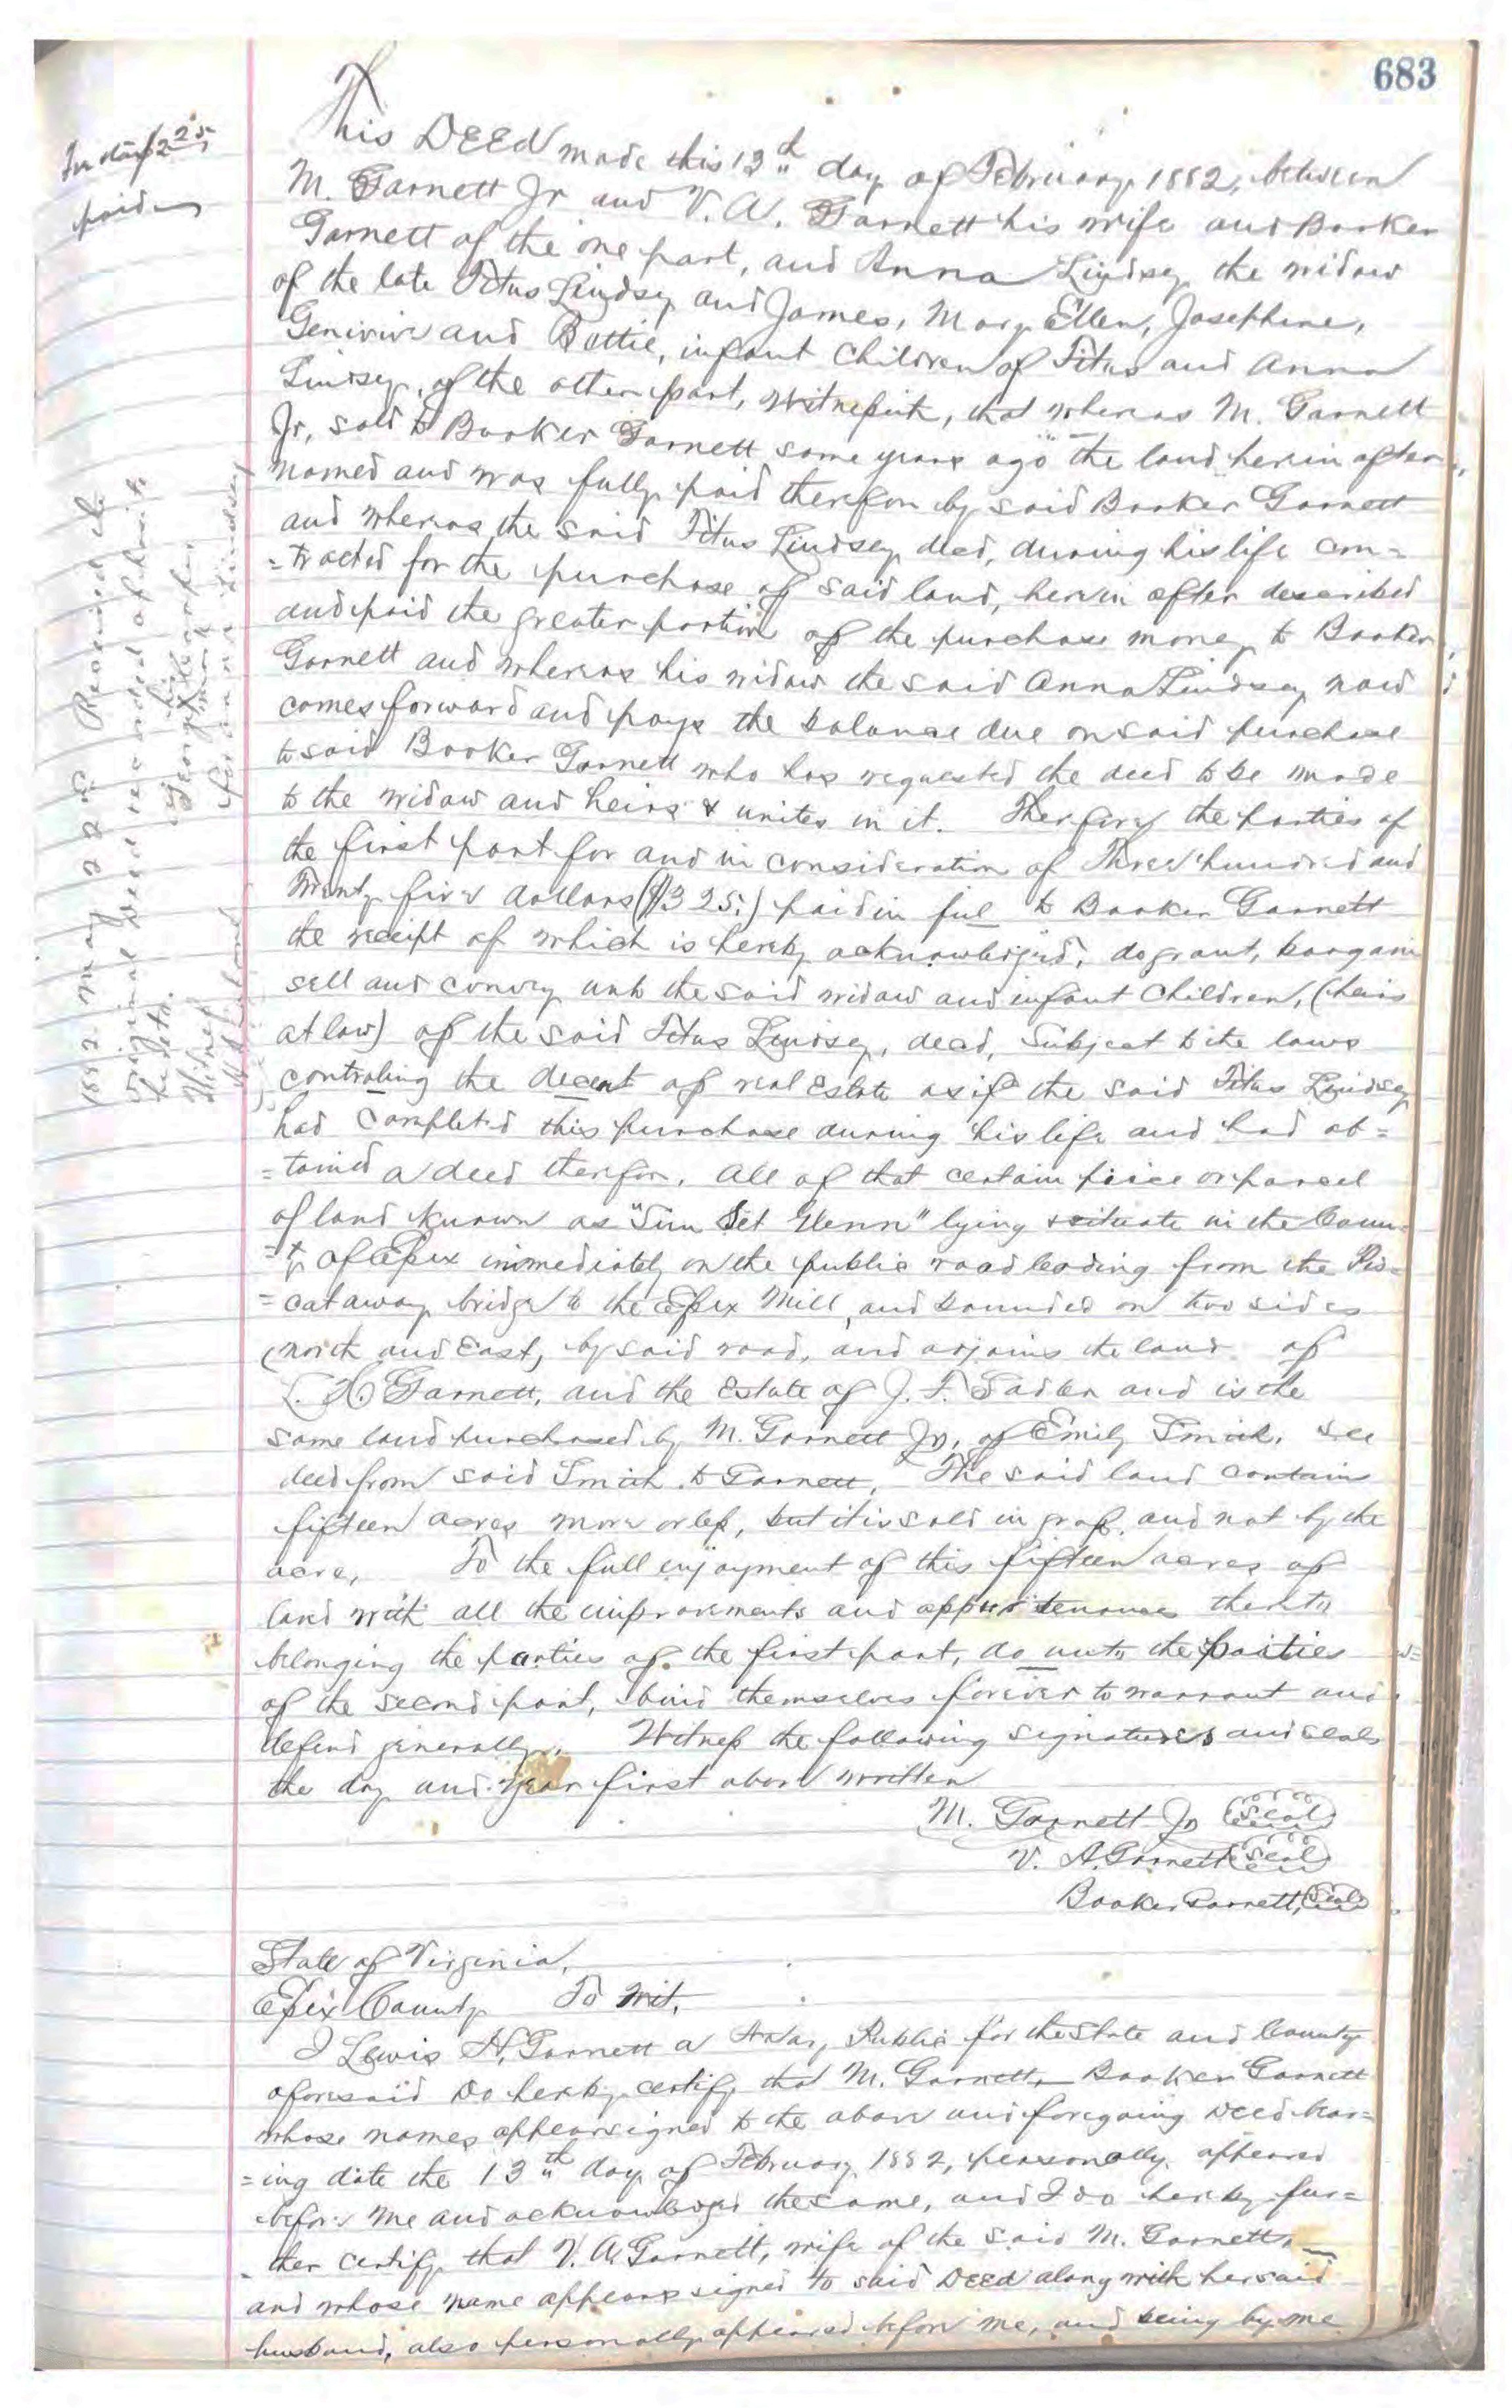 683
paid
This DEED made this 13th day of February 1882, between
M. Garnett Jr and V. A. Garnett his wife and Booker
Garnett of the one part, and Anna Lindsey the widow
of the late Titus Lindsey and James, Mary Ellen, Josephine,
Genivive and Bettie, infant children of Titus and Anna
Lindsey, of the other part, Witnesseth, that whereas M. Garnett
Jr, sold to Booker Garnett some years ago the land herein after
named and was fully paid therefor by said Booker Garnett
and whereas the said Titus Lindsey decd, during his life con=
=tracted for the purchase of said land, herein after described
and paid the greater portion of the purchase money to Booker
Garnett and whereas his widow the said Anna Lindsey now
comes forward and pays the balance due on said purchase
to said Booker Garnett who has requested the deed to be made
to the widow and heirs & unites in it. Therefore the parties of
the first part for and in consideration of Three hundred and
Twenty five dollars ($325.) paid in ful to Booker Garnett
the receipt of which is hereby acknowledged, do grant, bargain
sell and convey unto the said widow and infant children, (heirs
at law) of the said Titus Lindsey, decd, Subject to the laws
controling the decent of real Estate as if the said Titus Lindsey
had completed this purchase during his life and had ob=
=tained a deed therefor. All of that certain piece or parcel
of land known as "Sun Set Glenn" lying & situate in the Coun=
=ty of Essex immediately on the public road leading from the Pis=
=cataway bridge to the Essex Mill, and bounded on two sides
(north and East, by said road, and adjoins the land of
L. H. Garnett, and the Estate of J. F. Sadler and is the
same land purchased by M. Garnett Jr, of Emily Smith. See
deed from said Smith to Garnett. The said land contains
fifteen acres more or less, but it is sold in gross, and not by the
acre, To the full enjoyment of this fifteen acres of
land with all the improvements and appurtenances thereto
belonging the parties of the first part, do unto the parties
of the second part, bind themselves forever to warrant and
defend generally. Witness the following signatures and seals
the day and year first above written
M. Garnett Jr (Seal)
V. A. Garnett (Seal)
Booker Garnett, (Seal)
State of Virginia,
Essex County To Wit,
I Lewis H. Garnett a Notary Public for the State and County
aforesaid Do hereby certify that M. Garnett, Booker Garnett
whose names appear signed to the above and foregoing Deed bear=
=ing date the 13th day of February 1882, personally appeared
before me and acknowledged the same, and I do hereby fur=
=ther certify that V. A. Garnett, wife of the said M. Garnett
and whose name appears signed to said Deed along with her said
husband, also personally appeared before me, and being by me
1882 May 22nd Received the
original deed recorded opposite
hereto.
Witness
his
mark
for Anna Lindsey